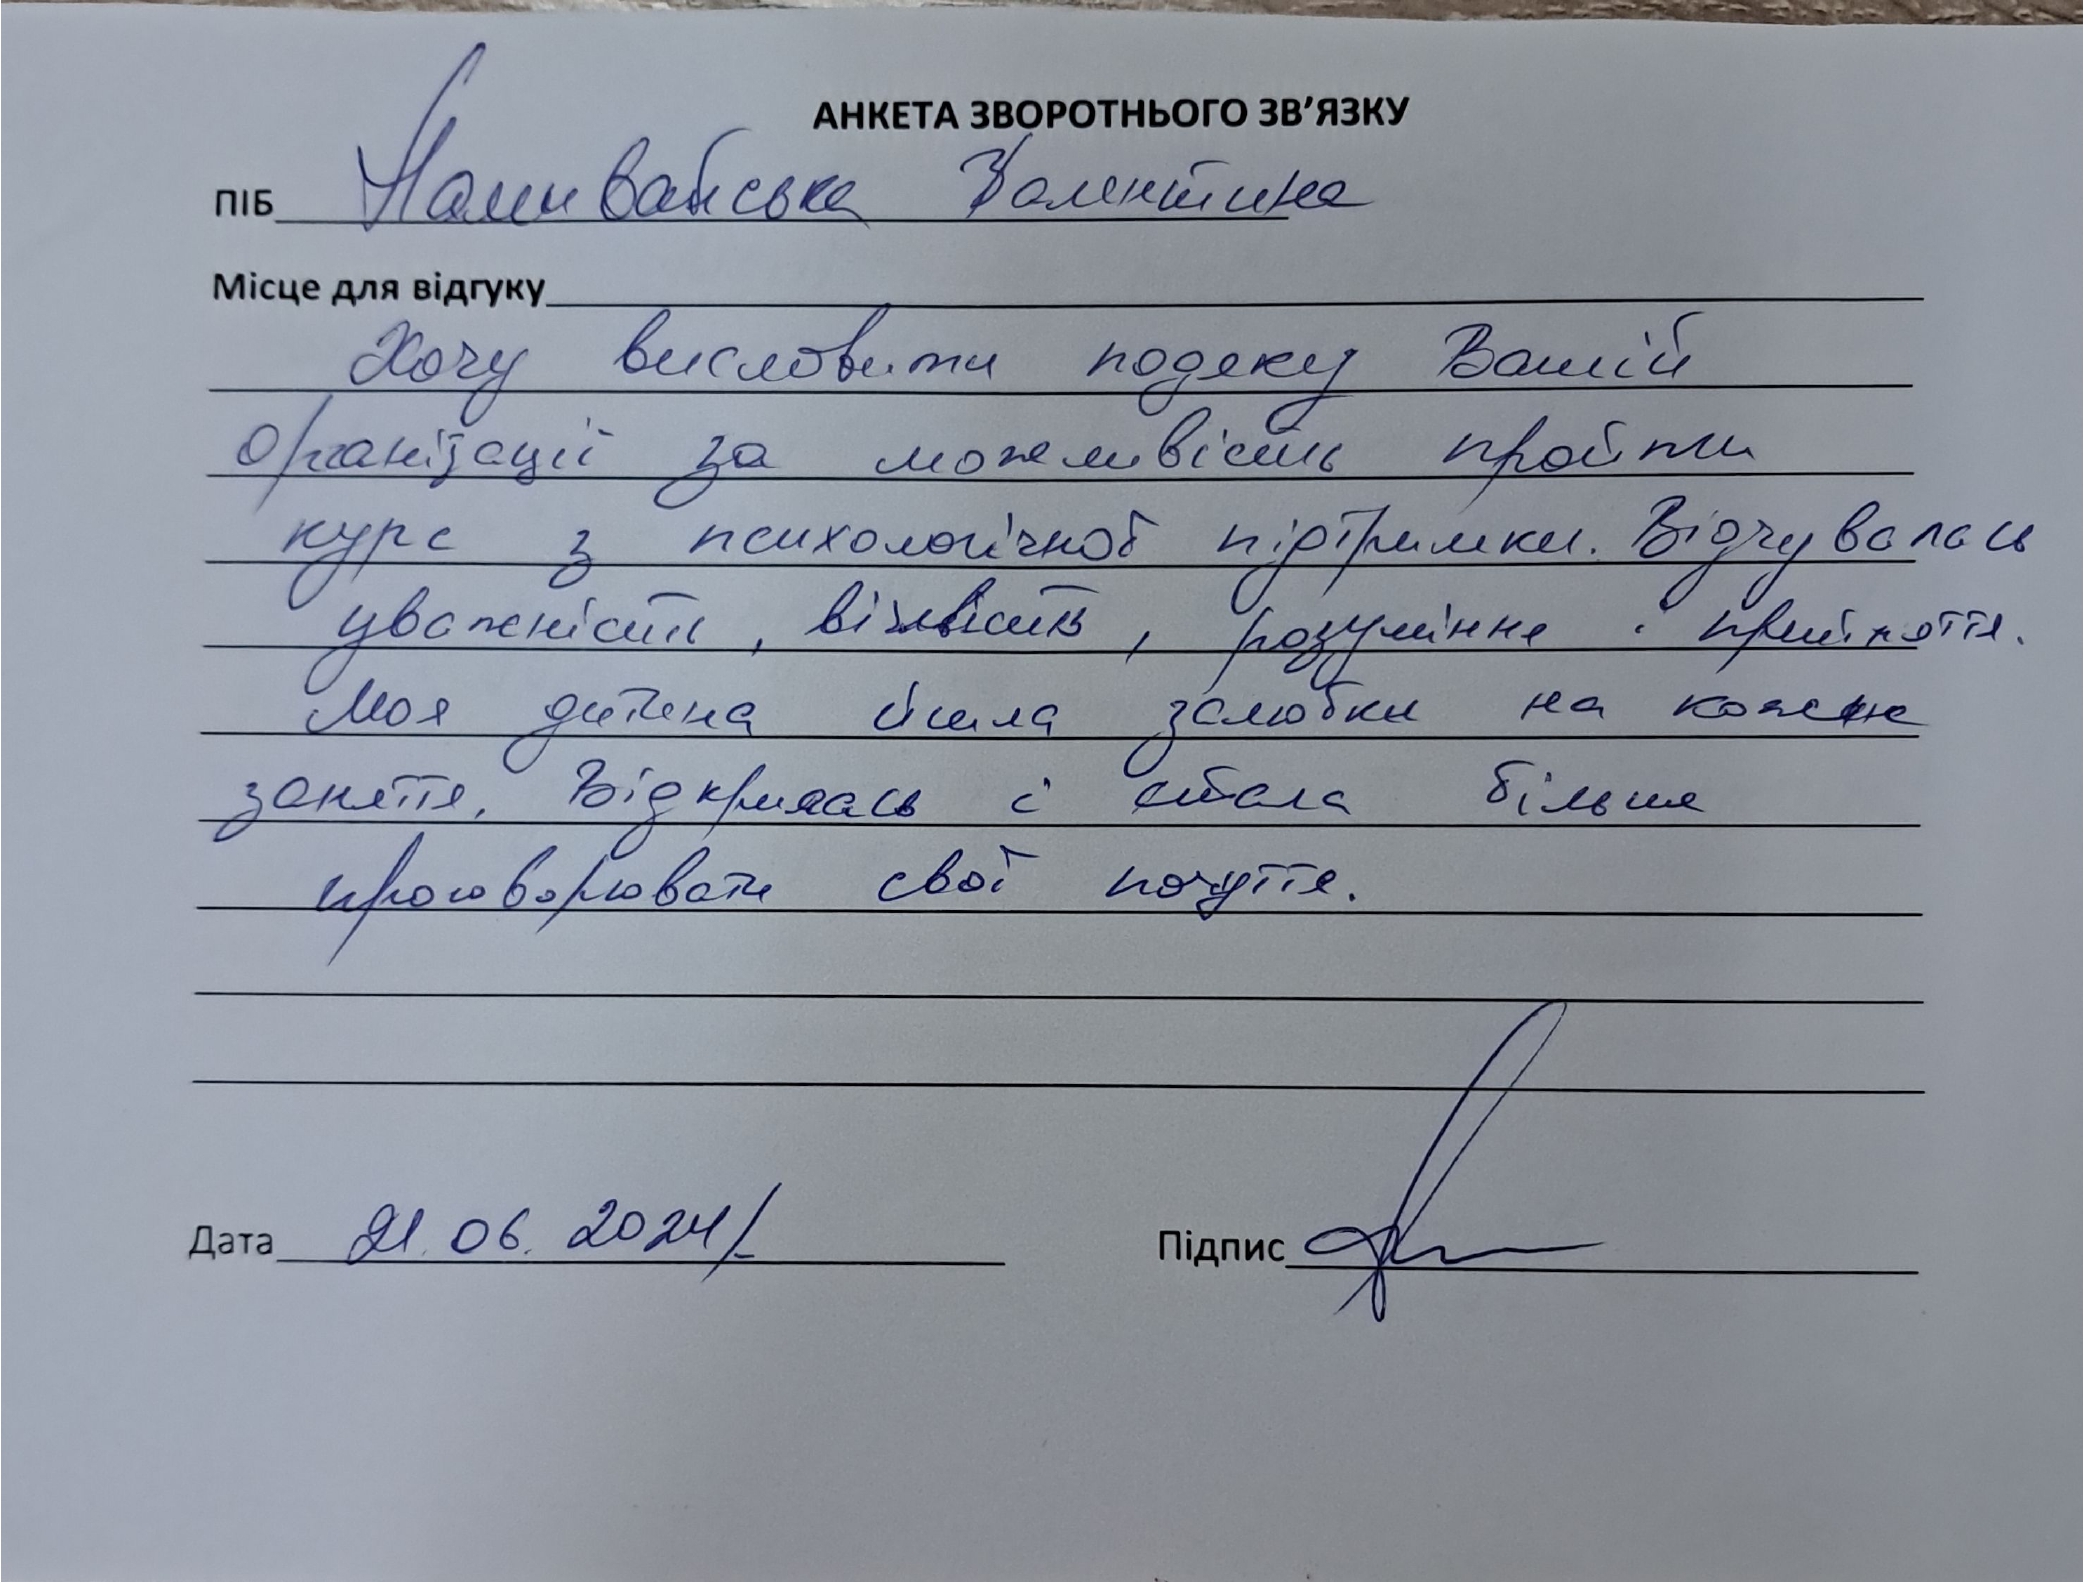 АНКЕТА ЗВОРОТНЬОГО ЗВ’ЯЗКУ
ПІБ Наливайська Валентина
Місце для відгуку
Хочу висловити подяку Вашій
організації за можливість пройти
курс з психологічної підтримки. Відчувалась
уважність, розуміння і прийняття.
Моя дитина йшла залюбки на кожне
заняття. Відкрилась і стала більше
проговорювати свої почуття.
Дата 21.06.2024
Підпис